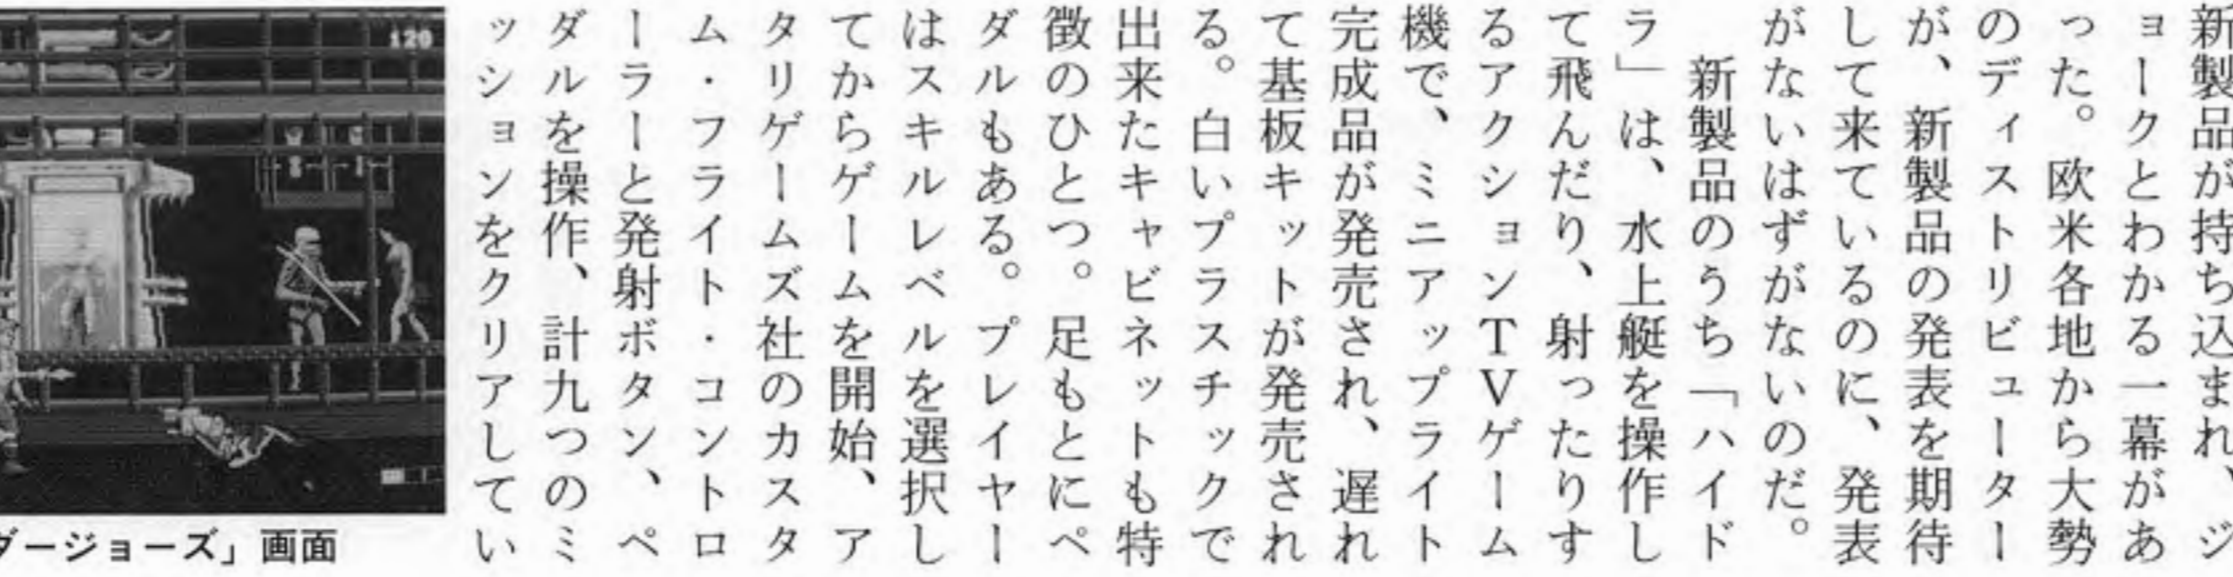 新製品が持ち込まれ、ジ
ョークとわかる一幕があ
った。欧米各地から大勢
のディストリビューター
が、新製品の発表を期待
して来ているのに、発表
がないはずがないのだ。
新製品のうち「ハイド
ラ」は、水上艇を操作し
て飛んだり、射ったりす
るアクションTVゲーム
機で、ミニアップライト
完成品が発売され、遅れ
て基板キットが発売され
る。白いプラスチックで
出来たキャビネットも特
徴のひとつ。足もとにペ
ダルもある。プレイヤー
はスキルレベルを選択し
てからゲームを開始、ア
タリゲームズ社のカスタ
ム・フライト・コントロ
ーラーと発射ボタン、ペ
ダルを操作、計九つのミ
ッションをクリアしてい
120
ダージョーズ」画面